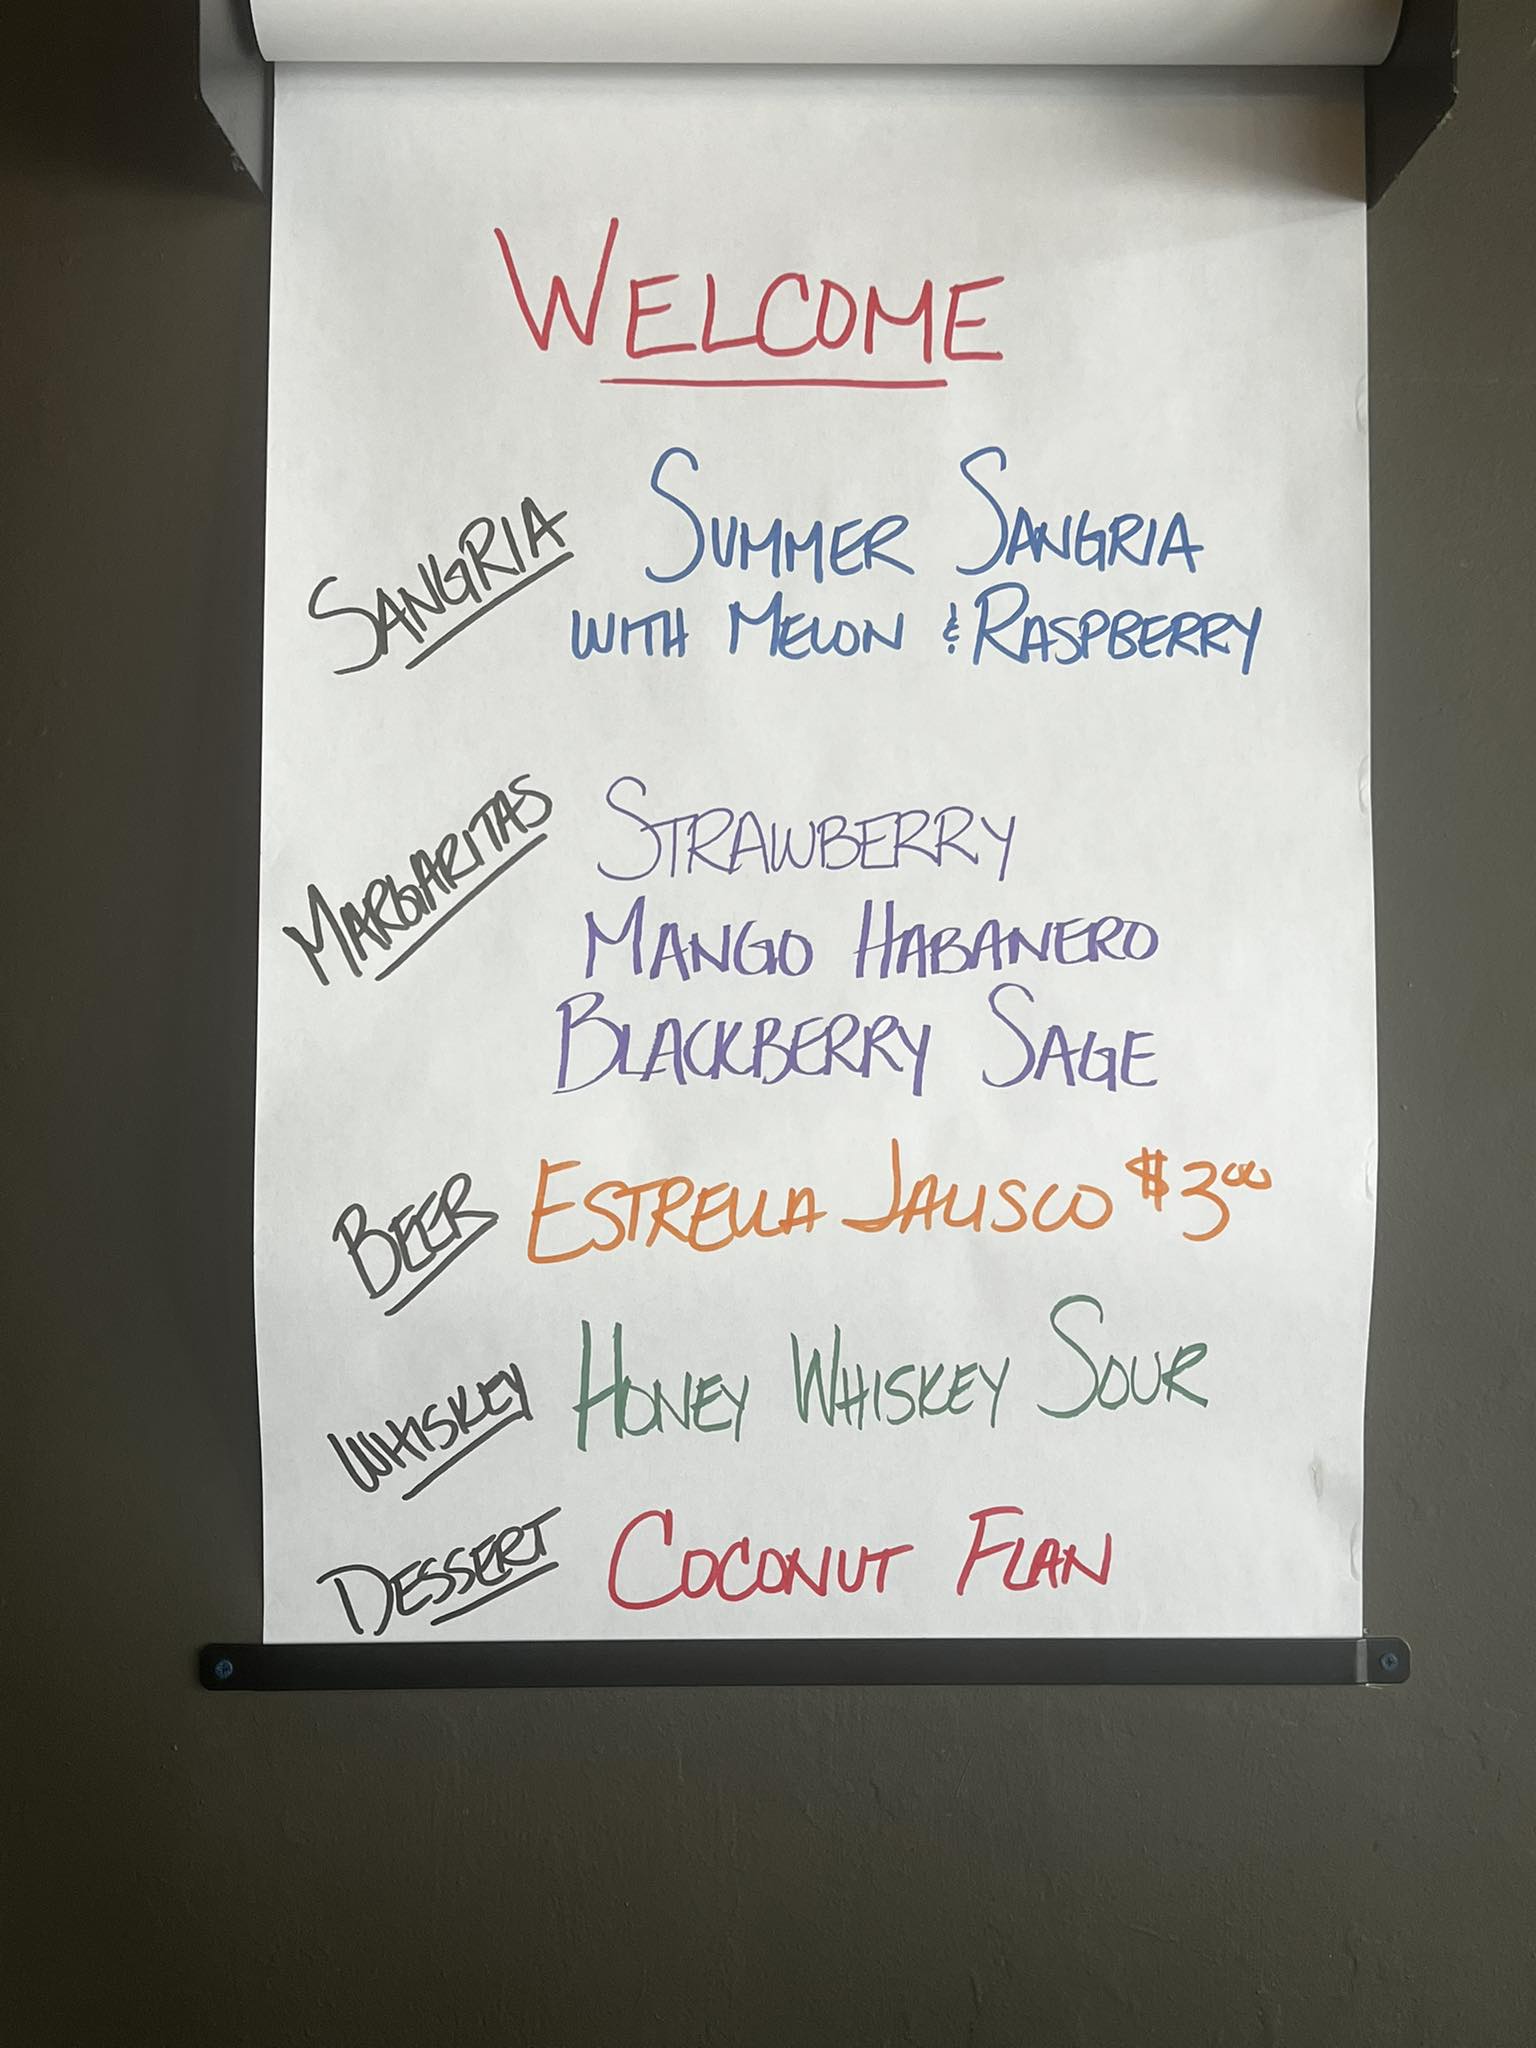 WELCOME
SANGRIA SUMMER SANGRIA
WITH MELON & RASPBERRY
MARGARITAS STRAWBERRY
MANGO HABANERO
BLACKBERRY SAGE
BEER ESTRELLA JALISCO $3.00
WHISKEY HONEY WHISKEY SOUR
DESSERT COCONUT FLAN